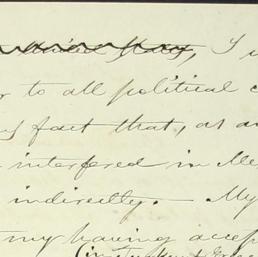 United States, I
to all political
fact that, as a
interfered in Me
indirectly. My
my having accep